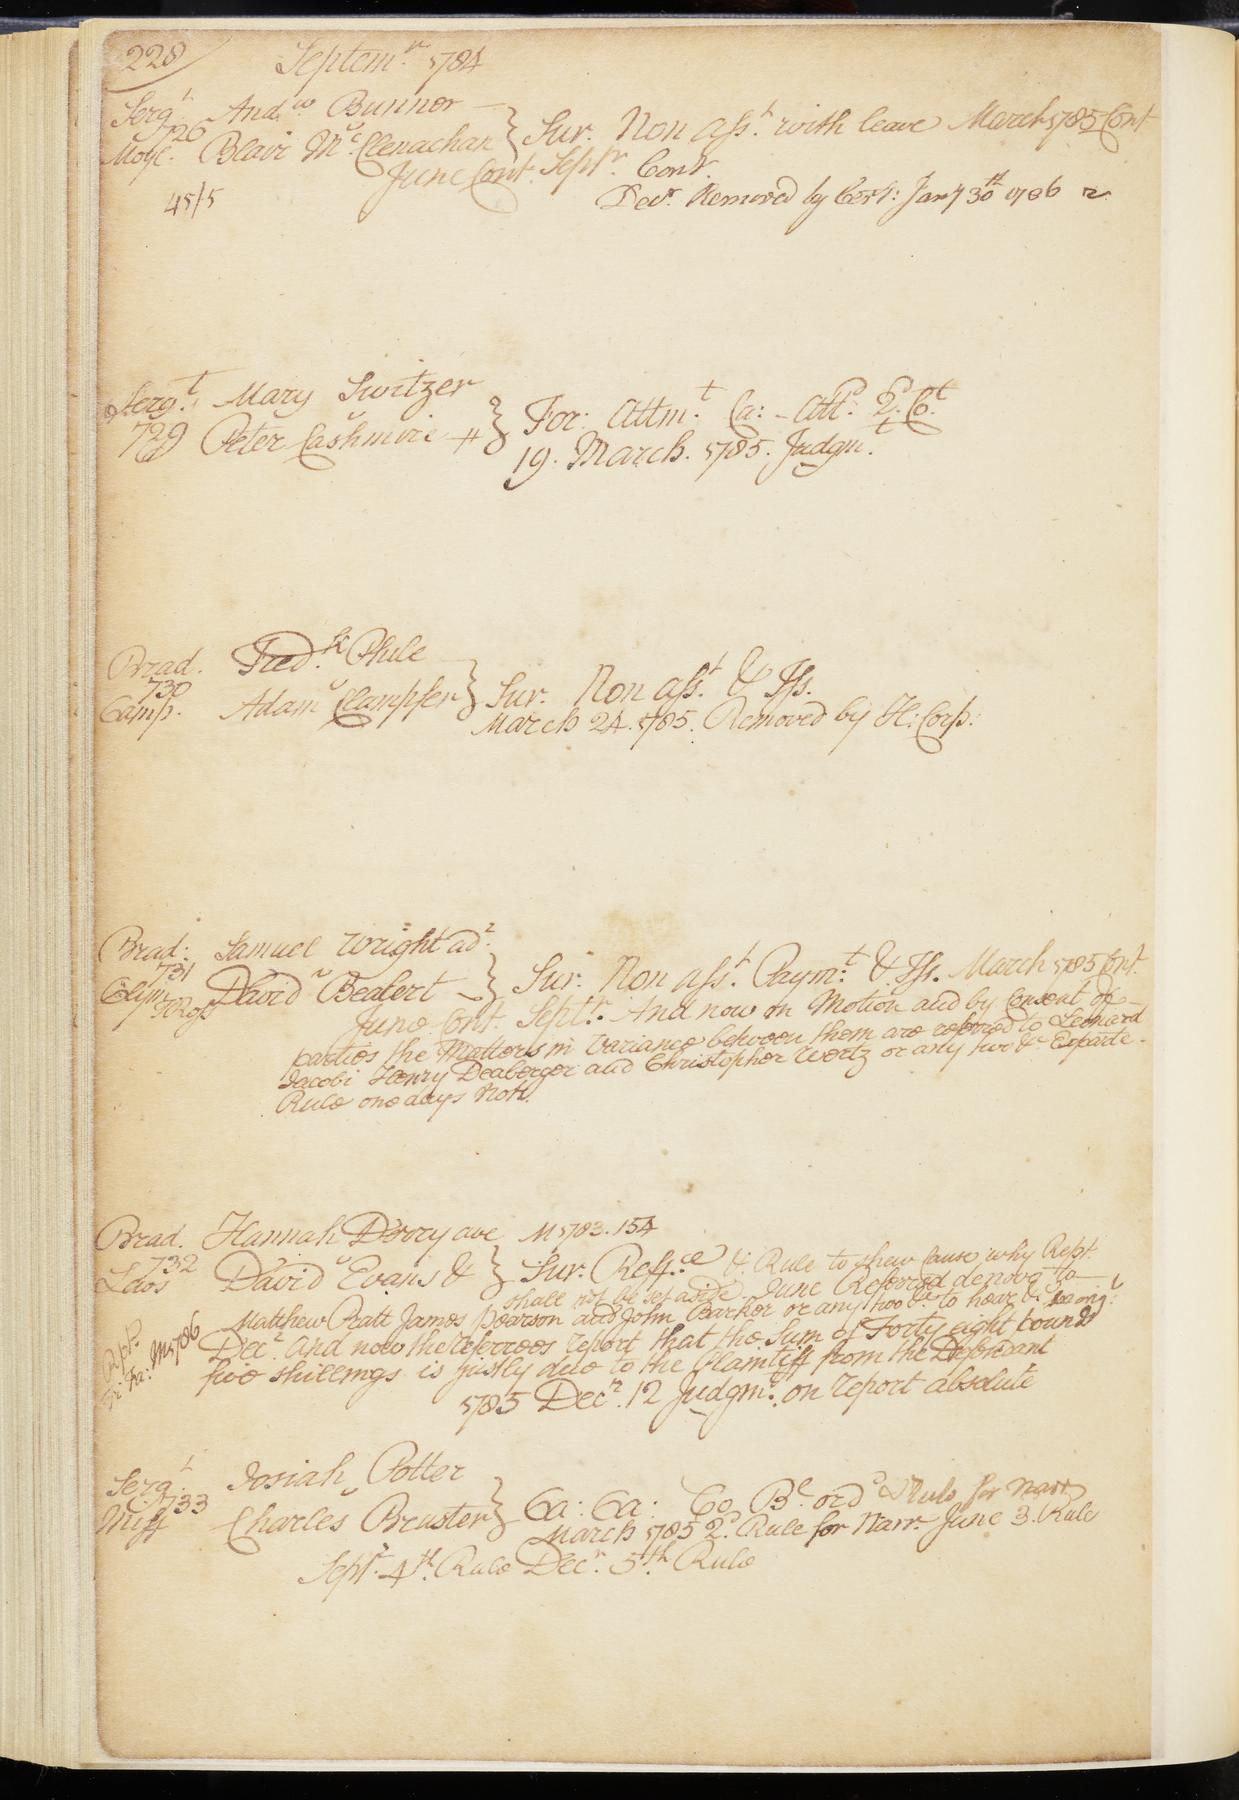 228 Septem.r 1784
Serg.t And.w Bunner
726 v
Moyl. Blair Mc.Clenachan } Sur. Non Ass.t with leave March 1785 Cont
June Cont. Sept.r Cont.
45/5 Dec.r Removed by Cert: Jan.y 30th 1786
Serg.t Mary Switzer
729 v
Peter Cashmire # } For: Attm.t Ca: - Att.d 2.d Co.t
19. March. 1785. Judgm.t
Brad. Fred.k Phile
730 v
Camp. Adam Clampfer } Sur. Non ass.t & Iss.
March 24. 1785. Removed by H: Corp:
Brad: Samuel Wright ad.r
731 v
Clym David Bealert } Sur. Non ass.t Paym.t & Iss. March 1785 Cont.
June Cont. Sept.r And now on Motion and by Consent of
parties the Matters in Variance between them are referred to Leonard
Jacobi Henry Deaberger and Christopher Wertz or any two &c Exparte
Rule one days Not.
Brad. Hannah Derry M 1783. 154
732 v
David Evans & } Sur. Reff.ce & Rule to shew Cause why Rept.
shall not be set aside. June Referred denovo to
Matthew Pratt James Pearson and John Barker or any two &c to hear &c
Dec.r And now the referrees report that the Sum of Forty eight pounds
five shillings is justly due to the Plaintiff from the Defendant
Fi: Fa: M 1786
1785 Dec.r 12 Judgm.t on report absolute
Serg.t Josiah Potter
733 v
Miff Charles Bruster } Ca: Ca: Co Be ord.d & Rule for Narr
March 1785 2.d Rule for Narr. June 3. Rule
Sept.r 4th. Rule Dec.r 5th. Rule